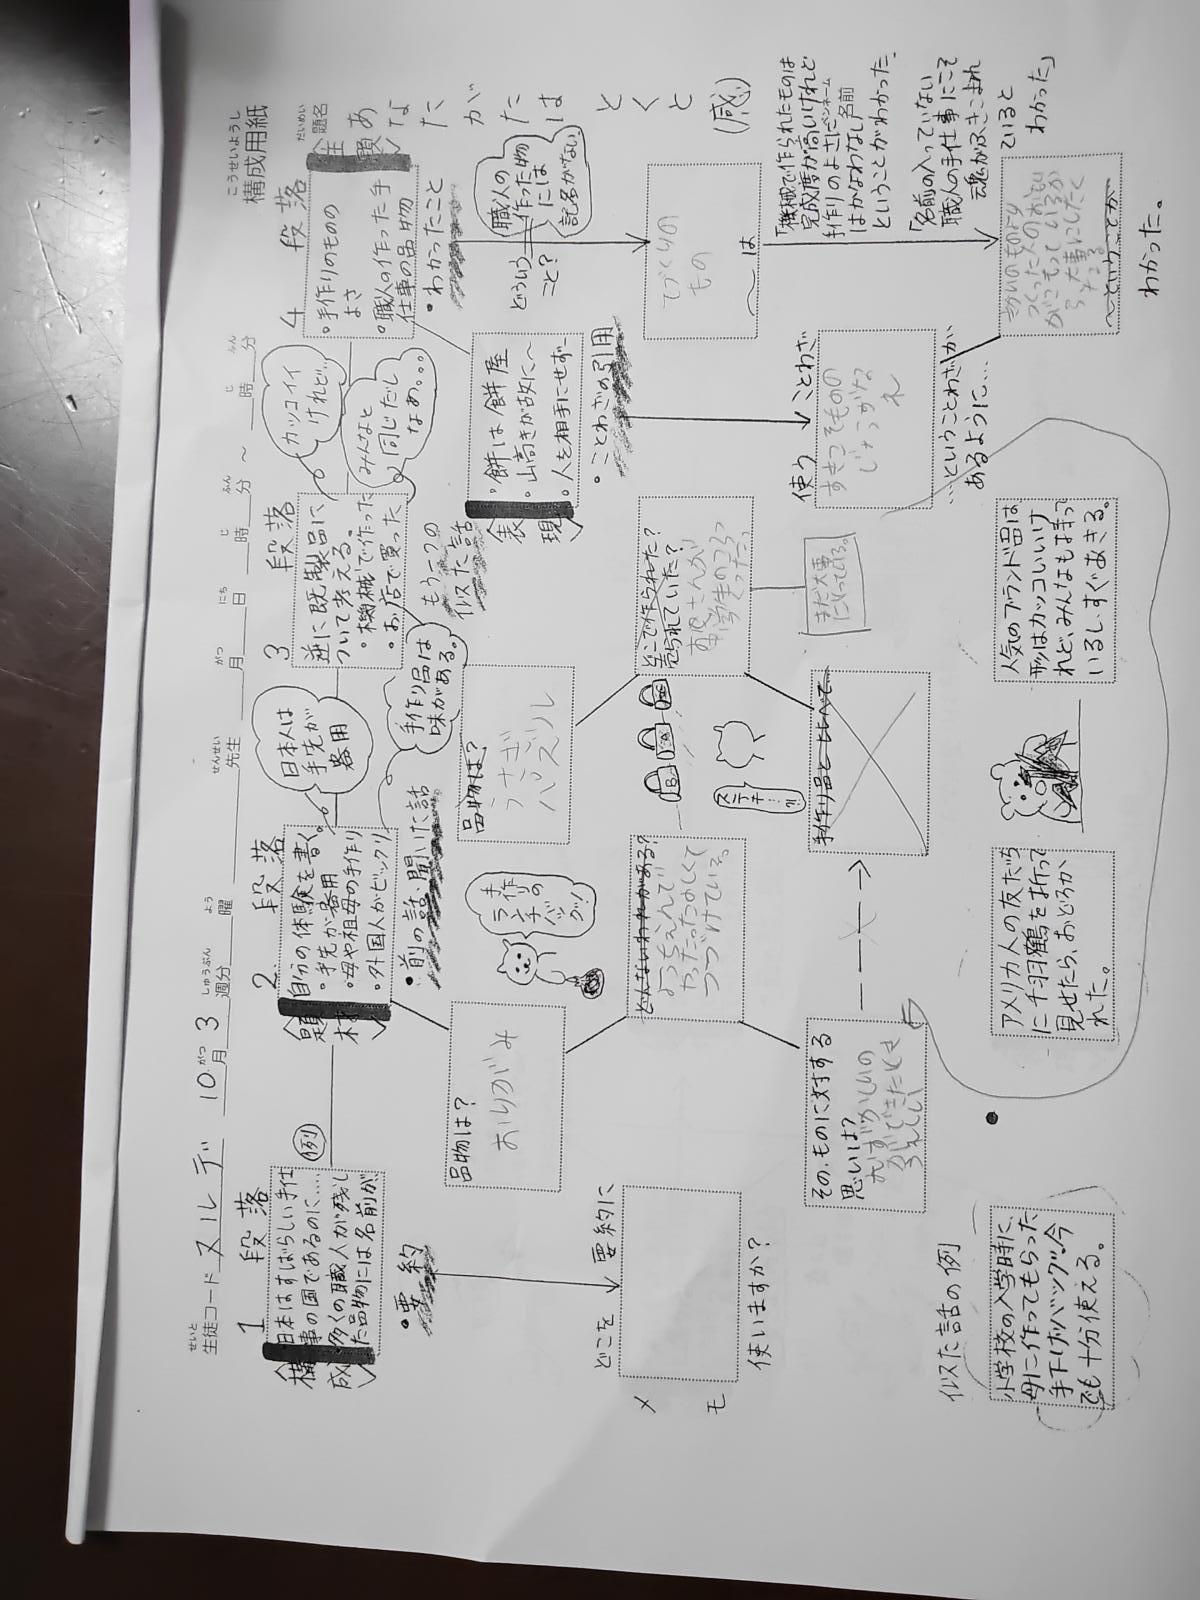 こうせいようし
構成用紙
せいと
生徒コード ヌルデ 10 がつ 月 3 しゅうぶん 週分 よう 曜 せんせい 先生 がつ 月 にち 日 じ 時 ふん 分 ～ じ 時 ふん 分
だいめい
題名
1 段落
構成
日本はすばらしい手仕
事の国であるのに…
多くの職人が残し
た品物には名前が、
例
・要約
どこを 要約に
使いますか？
メモ
2 段落
題材
自分の体験を書く。
・手先が器用
・母や祖母の手作り
・外国人がビックリ
日本人は
手先が
器用
手作り品は
味がある。
・前の話・聞いた話
品物は？
おりがみ
手作りの
ランチ
バッグ！
どんないわれがある？
ようちえんで
やったたのしくて
つづけている。
そのものに対する
思いは？
むずかしいの
ができたとき
うれしい
3 段落
逆に既製品に
ついて考える。
・機械で作った
・お店で買った
カッコイイ
けれど…
みんなと
同じだし
なあ。。。
もう一つの
似た話
品物は？
うさぎ
パズル
どこで作られた？
売られていた？
お兄さんが
中学生のころ
つくった
まだ大事
にしてる。
ステキ…!!
手作り品とくらべて
4 段落
主題
・手作りのものの
よさ
・職人の作った手
仕事の品物
・わかったこと
あなたがたはとくと（感）
表現
・餅は餅屋
・山高きが故に～
・人を相手にせず～
・ことわざの引用
職人の
作った物
には
記名がない
どういう
こと？
てづくりの
もの
～は
使う ことわざ
すきこそものの
じょうずな
れ
…ということわざが
あるように…
「機械で作られたものは
完成度が高いけれど
手作りのよさにペンネーム
はかなわない」名前
ということがわかった。
「名前の入っていない
職人の手仕事にこそ
魂がふきこまれ
ていると
わかった」
～ということが
わかった。
似た話の例
小学校の入学時に、
母に作ってもらった
手下げバッグ。今
でも十分使える。
アメリカ人の友だち
に千羽鶴を折って
見せたら、おどろか
れた。
人気のブランド品は
形はカッコいいけ
れど、みんなも持って
いるし、すぐあきる。